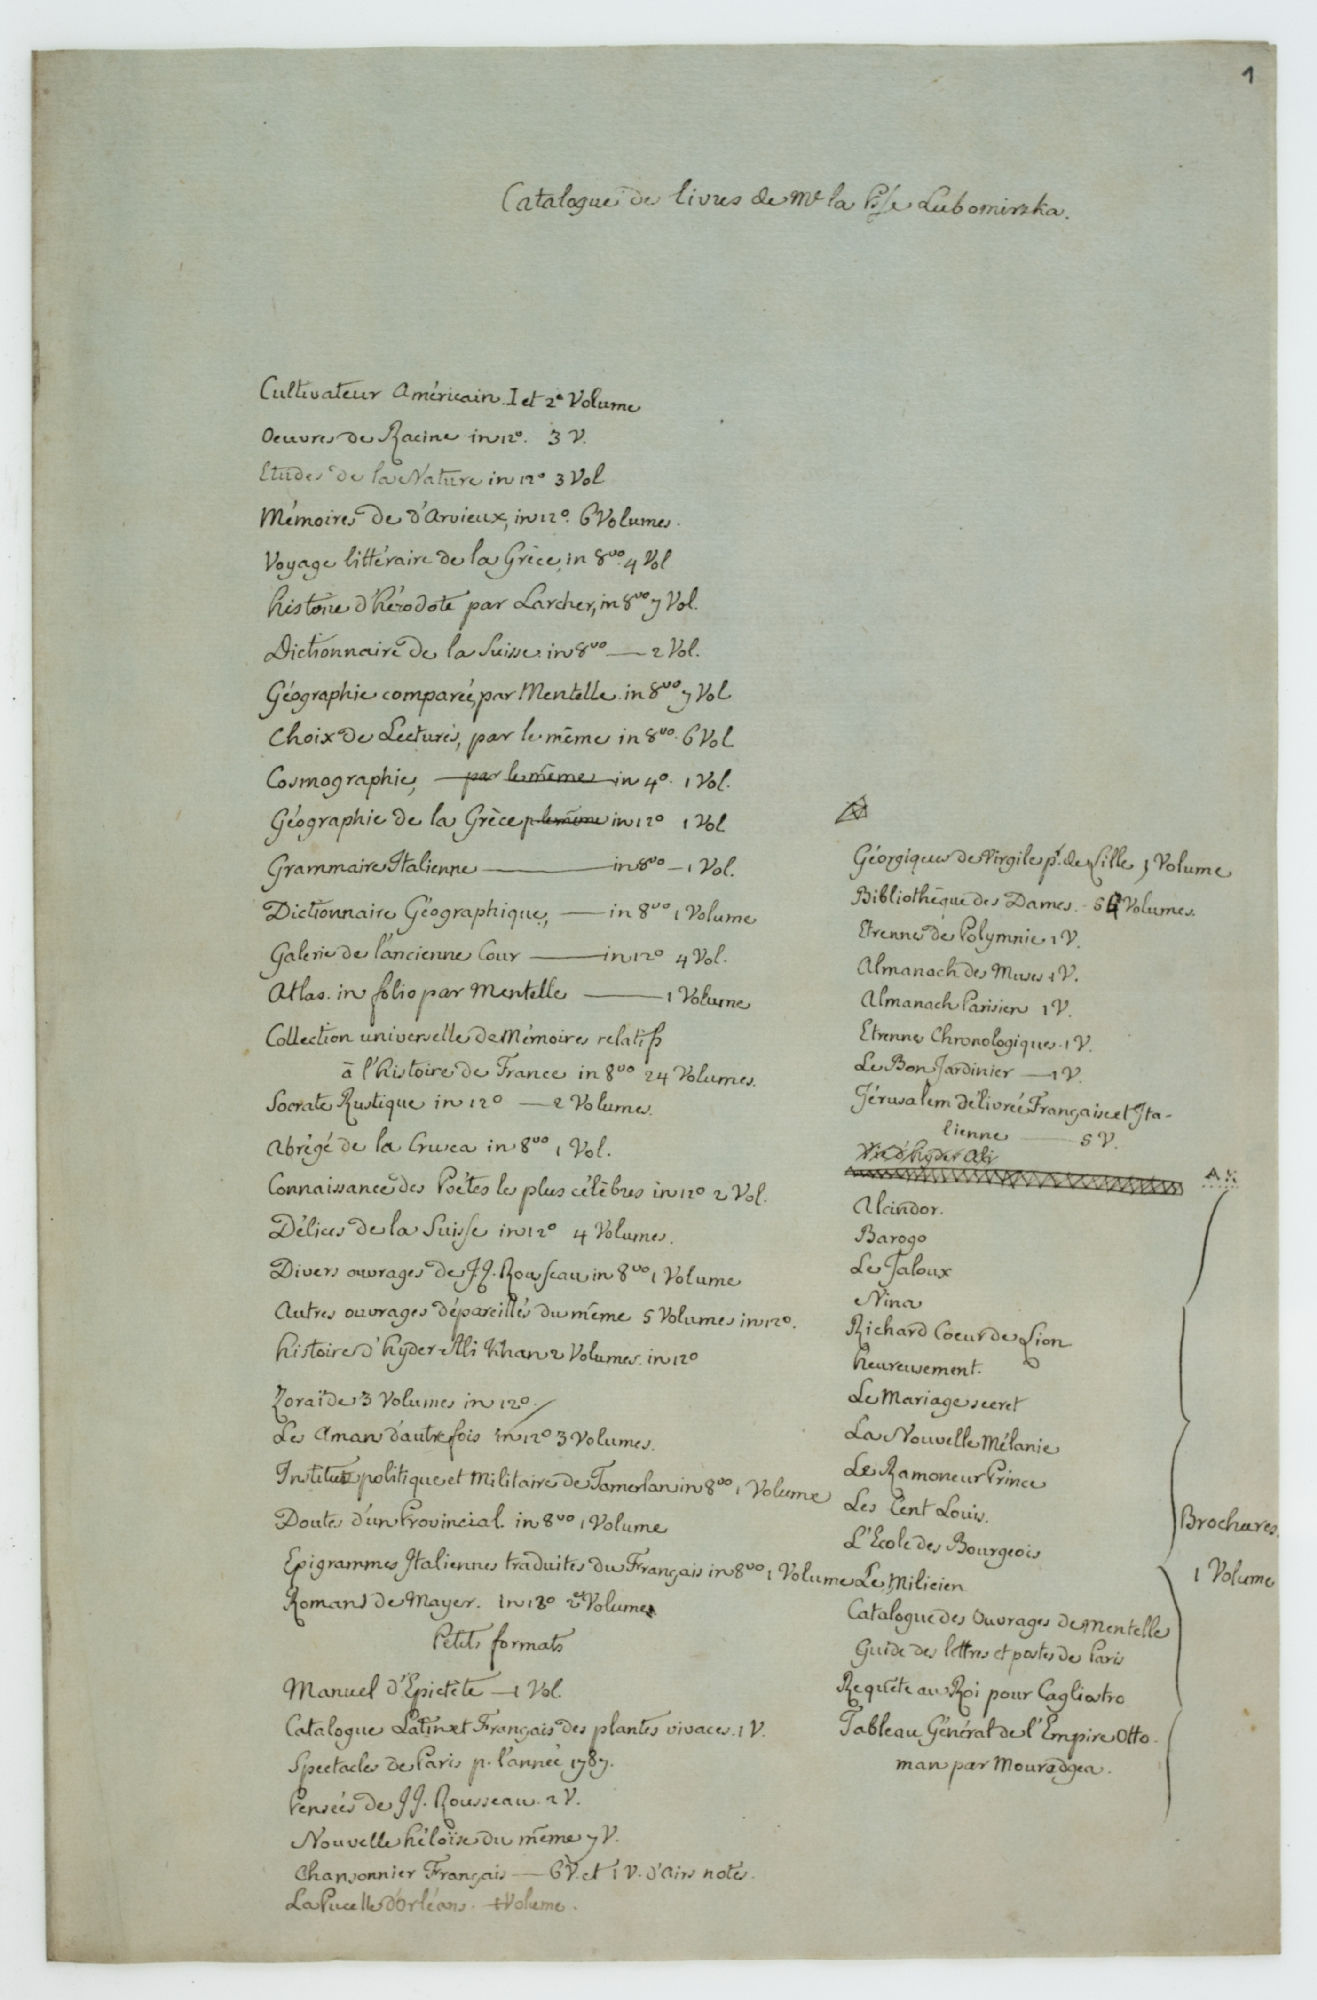 1
Catalogue de livres de Me la Psse Lubomirska.
Cultivateur Américain. I et 2e Volume
Oeuvres de Racine in 12o. 3 V.
Etudes de la Nature in 12o 3 Vol
Mémoires de d'Arvieux, in 12o. 6 Volumes.
Voyage littéraire de la Grèce, in 8vo. 4 Vol
histoire d'hérodote par Larcher, in 8vo 7 Vol.
Dictionnaire de la Suisse. in 8vo — 2 Vol.
Géographie comparée, par Mentelle. in 8vo 7 Vol
Choix de Lectures, par le même in 8vo. 6 Vol
Cosmographie, par le même in 4o. 1 Vol.
Géographie de la Grèce p. le même in 12o 1 Vol
Grammaire Italienne — in 8vo — 1 Vol.
Dictionnaire Géographique, — in 8vo 1 Volume
Galerie de l'ancienne Cour — in 12o 4 Vol.
Atlas. in folio par Mentelle — 1 Volume
Collection universelle de Mémoires relatifs
à l'histoire de France in 8vo 24 Volumes.
Socrate Rustique in 12o — 2 Volumes.
Abrégé de la Crusca in 8vo 1 Vol.
Connaissance des Poëtes les plus célèbres in 12o 2 Vol.
Délices de la Suisse in 12o 4 Volumes.
Divers ouvrages de J J. Rousseau in 8vo 1 Volume
Autres ouvrages dépareillés du même 5 Volumes in 12o.
histoire d'hyder Alli Khan 2 Volumes. in 12o
Zoraïde 3 Volumes in 12o.
Les Aman d'autrefois in 12o 3 Volumes.
Institut politique et Militaire de Tamerlan in 8vo 1 Volume
Doutes d'un Provincial. in 8vo 1 Volume
Epigrammes Italiennes traduites du Français in 8vo 1 Volume
Romans de Mayer. In 18o 2 Volumes
Petits formats
Manuel d'Epictète — 1 Vol.
Catalogue Latin et Français des plantes vivaces. 1 V.
Spectacles de Paris p. l'année 1787.
Pensées de J J. Rousseau. 2 V.
Nouvelle héloïse du même 7 V.
Chansonnier Français — 6 V. et 1 V. d'Airs notés.
La Pucelle d'Orléans. 1 Volume.
Géorgiques de Virgile pr. de Lille, 1 Volume
Bibliothèque des Dames. 5 Volumes.
Etrennes de Polymnie 1 V.
Almanach des Muses 1 V.
Almanach Parisien 1 V.
Etrennes Chronologiques. 1 V.
Le Bon Jardinier — 1 V.
Jérusalem délivrée Française et Ita-
lienne — 5 V.
Vie d'hyder Ali
AK
Alcindor.
Barogo
Le Jaloux
Nina
Richard Coeur de Lion
heureusement.
Le Mariage secret
La Nouvelle Mélanie
Le Ramoneur Prince
Les Cent Louis.
L'Ecole des Bourgeois
Le Milicien
Catalogue des Ouvrages de Mentelle
Guide des lettres et postes de Paris
Requête au Roi pour Cagliostro
Tableau Général de l'Empire Otto-
man par Mouradgea.
Brochures.
1 Volume